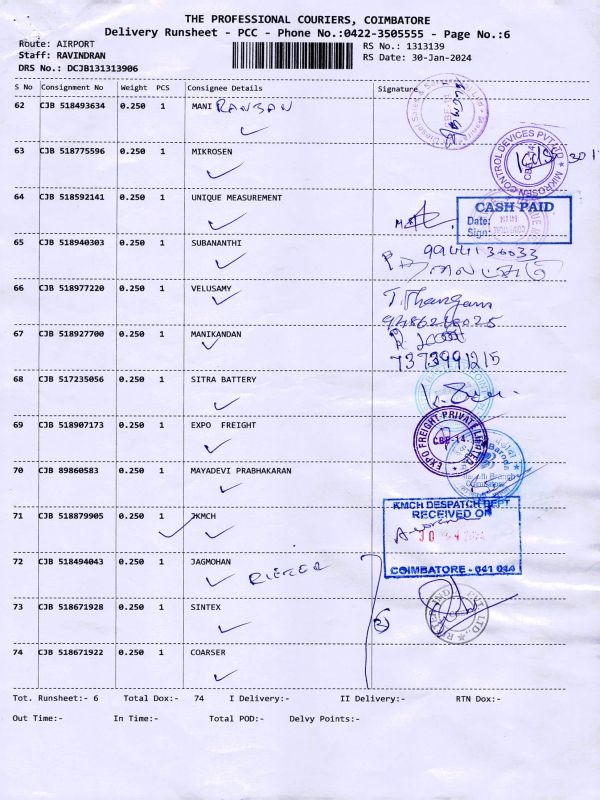 THE PROFESSIONAL COURIERS, COIMBATORE
Delivery Runsheet - PCC - Phone No.:0422-3505555 - Page No.:6
Route: AIRPORT RS No.: 1313139
Staff: RAVINDRAN RS Date: 30-Jan-2024
DRS No.: DCJB131313906
S No Consignment No Weight PCS Consignee Details Signature
62 CJB 518493634 0.250 1 MANI RANGAN
63 CJB 518775596 0.250 1 MIKROSEN
MIKROSEN CONTROL DEVICES PVT LTD
64 CJB 518592141 0.250 1 UNIQUE MEASUREMENT
CASH PAID
Date:
Sign:
65 CJB 518940303 0.250 1 SUBANANTHI
9944136033
66 CJB 518977220 0.250 1 VELUSAMY T. Thangam
9486210025
67 CJB 518927700 0.250 1 MANIKANDAN
7373991215
68 CJB 517235056 0.250 1 SITRA BATTERY
69 CJB 518907173 0.250 1 EXPO FREIGHT
EXPO FREIGHT PRIVATE LIMITED
CBE-14.
70 CJB 89860583 1 MAYADEVI PRABHAKARAN
KMCH DESPATCH DEPT
71 CJB 518879905 0.250 1 JKMCH RECEIVED ON
COIMBATORE - 641 014
72 CJB 518494043 0.250 1 JAGMOHAN RIETER
73 CJB 518671928 0.250 1 SINTEX
74 CJB 518671922 0.250 1 COARSER
Tot. Runsheet:- 6 Total Dox:- 74 I Delivery:- II Delivery:- RTN Dox:-
Out Time:- In Time:- Total POD:- Delvy Points:-